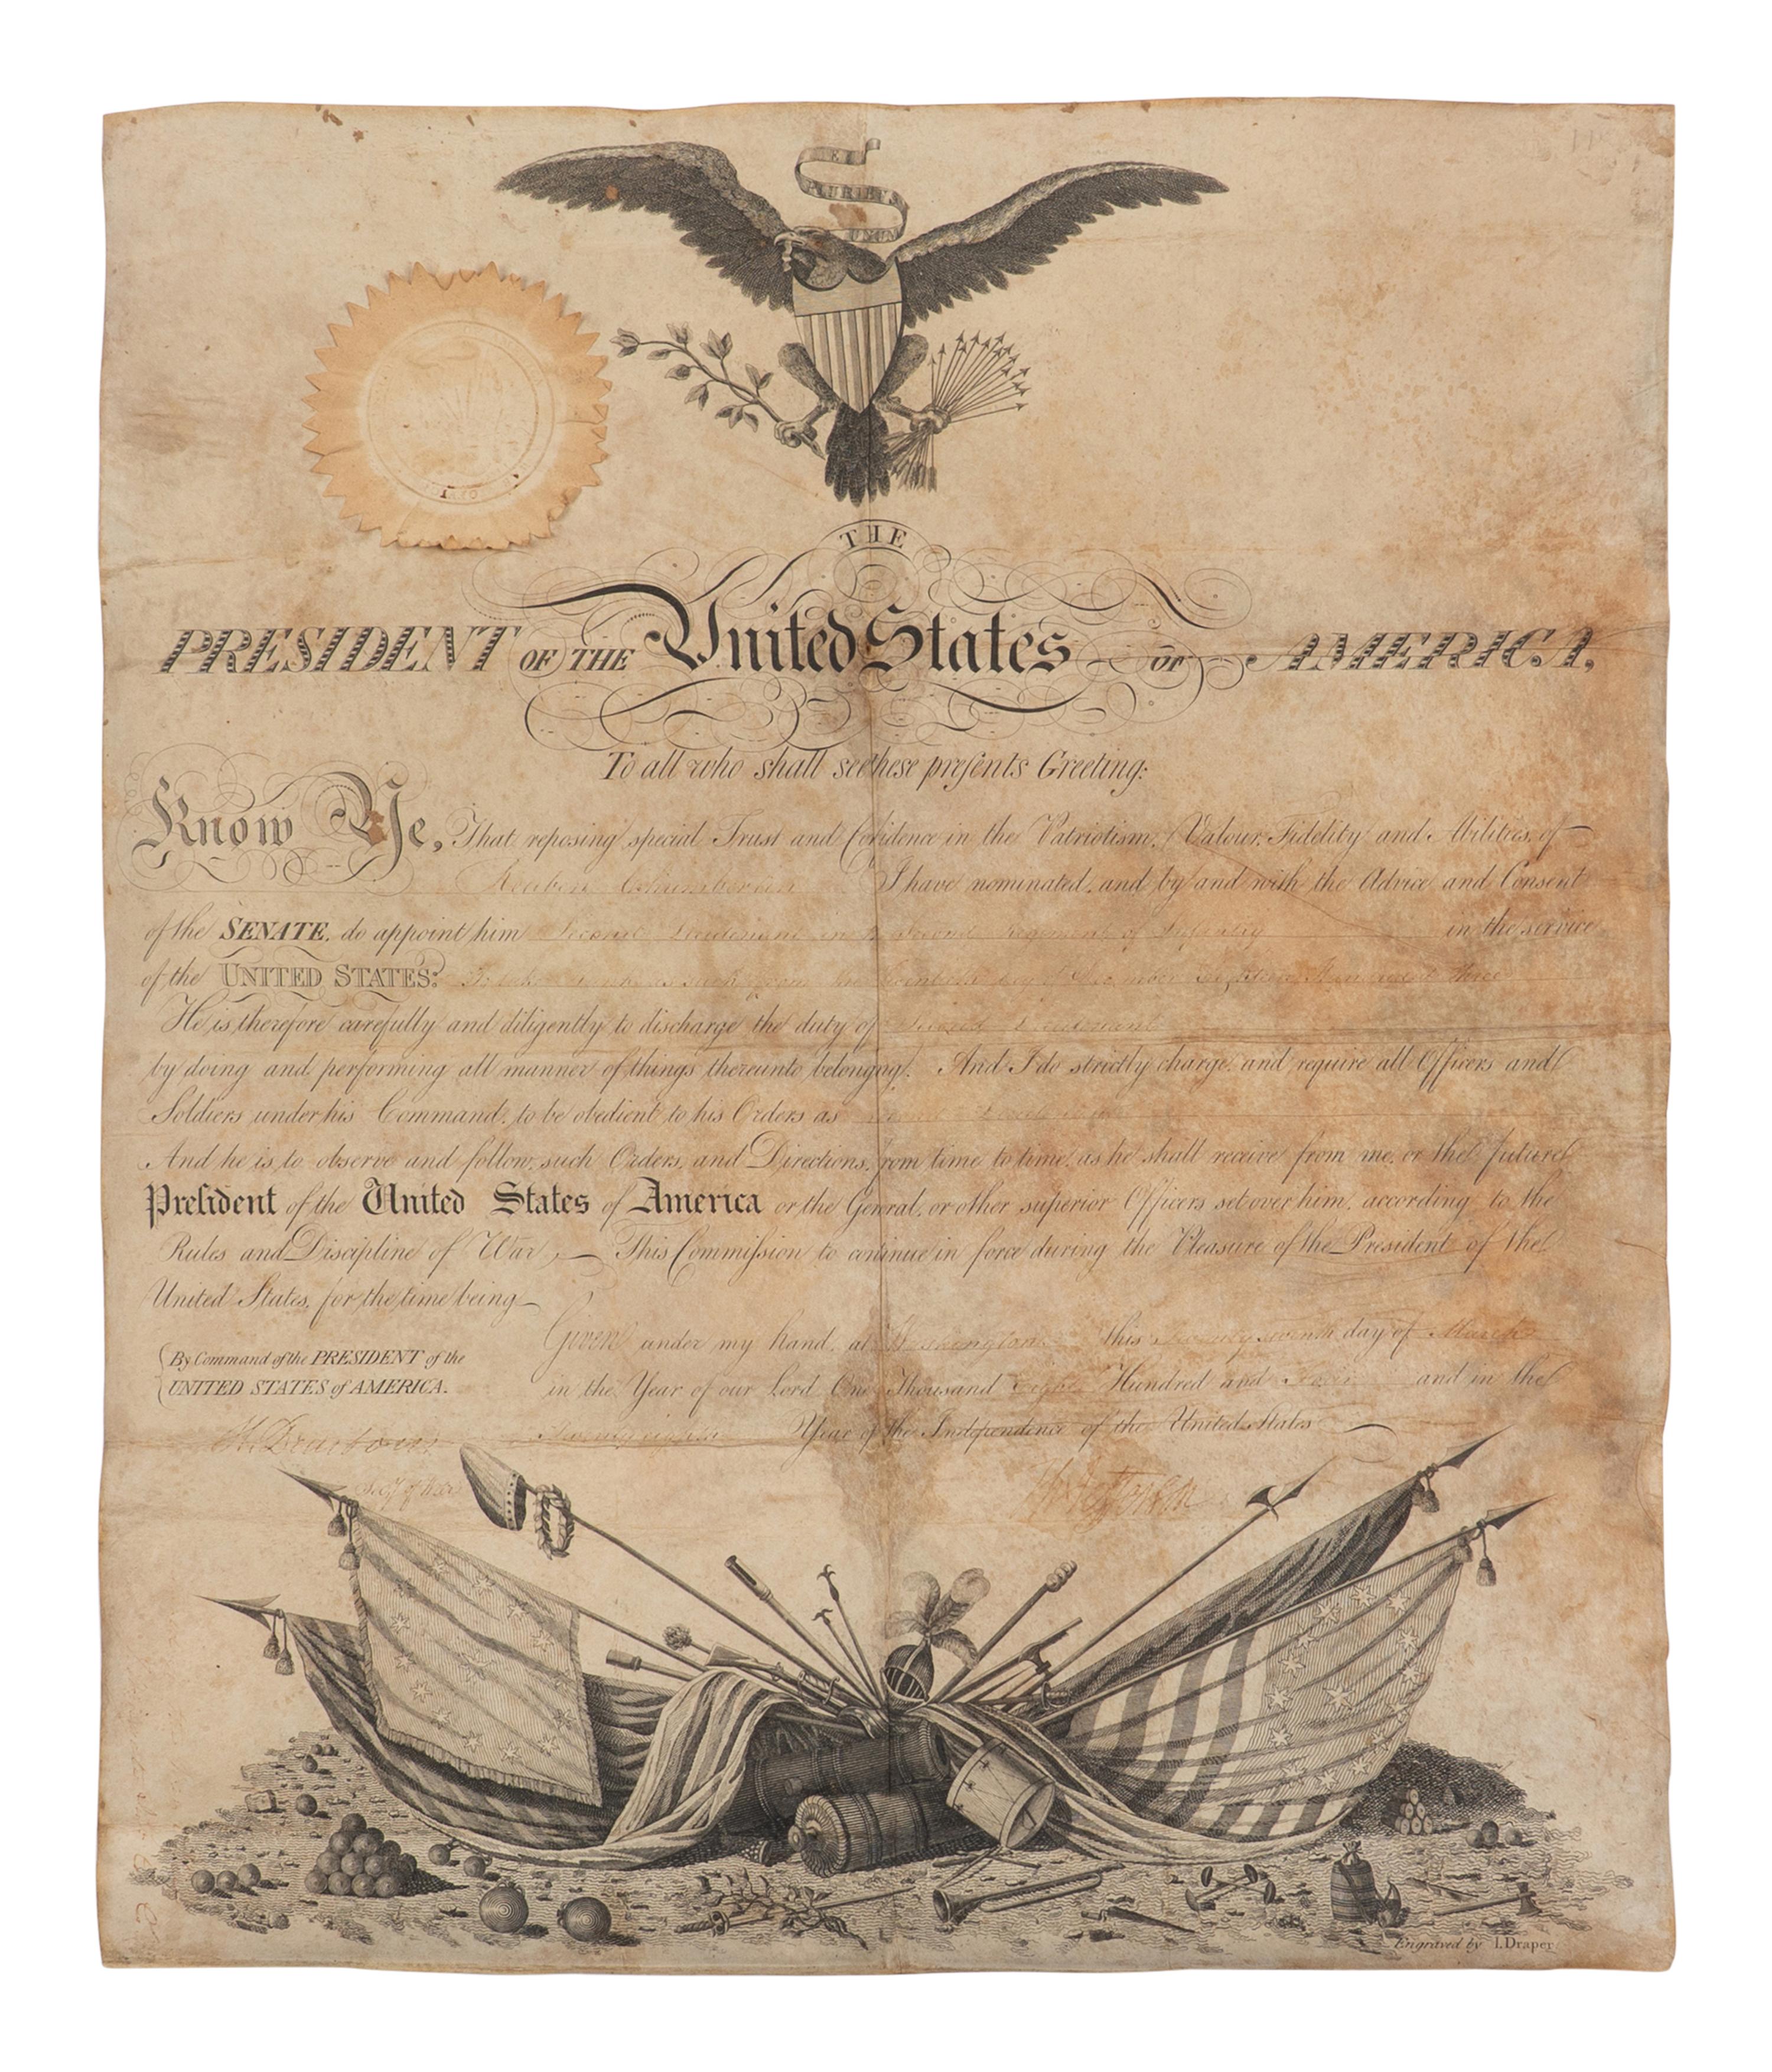 E
PLURIBUS
UNUM
THE
PRESIDENT OF THE United States OF AMERICA,
To all who shall see these presents Greeting:
Know Ye, That reposing special Trust and Confidence in the Patriotism, Valour, Fidelity and Abilities, of
Reuben Chamberlin I have nominated, and by and with the Advice and Consent
of the SENATE, do appoint him Second Lieutenant in the Second Regiment of Infantry in the service
of the UNITED STATES: To take rank as such from the day of December Eighteen Hundred three
He is, therefore carefully and diligently to discharge the duty of Second Lieutenant
by doing and performing all manner of things thereunto belonging. And I do strictly charge, and require all Officers and
Soldiers under his Command, to be obedient to his Orders as Second Lieutenant
And he is to observe and follow such Orders, and Directions, from time to time, as he shall receive from me, or the future
President of the United States of America or the General, or other superior Officers set over him, according to the
Rules and Discipline of War, This Commission to continue in force during the Pleasure of the President of the
United States, for the time being
Given under my hand, at Washington this Twenty seventh day of March
By Command of the PRESIDENT of the
UNITED STATES of AMERICA.
in the Year of our Lord One Thousand eight Hundred and Four and in the
Twenty eighth Year of the Independence of the United States
H. Dearborn
Secy of War
Th Jefferson
Engraved by I. Draper